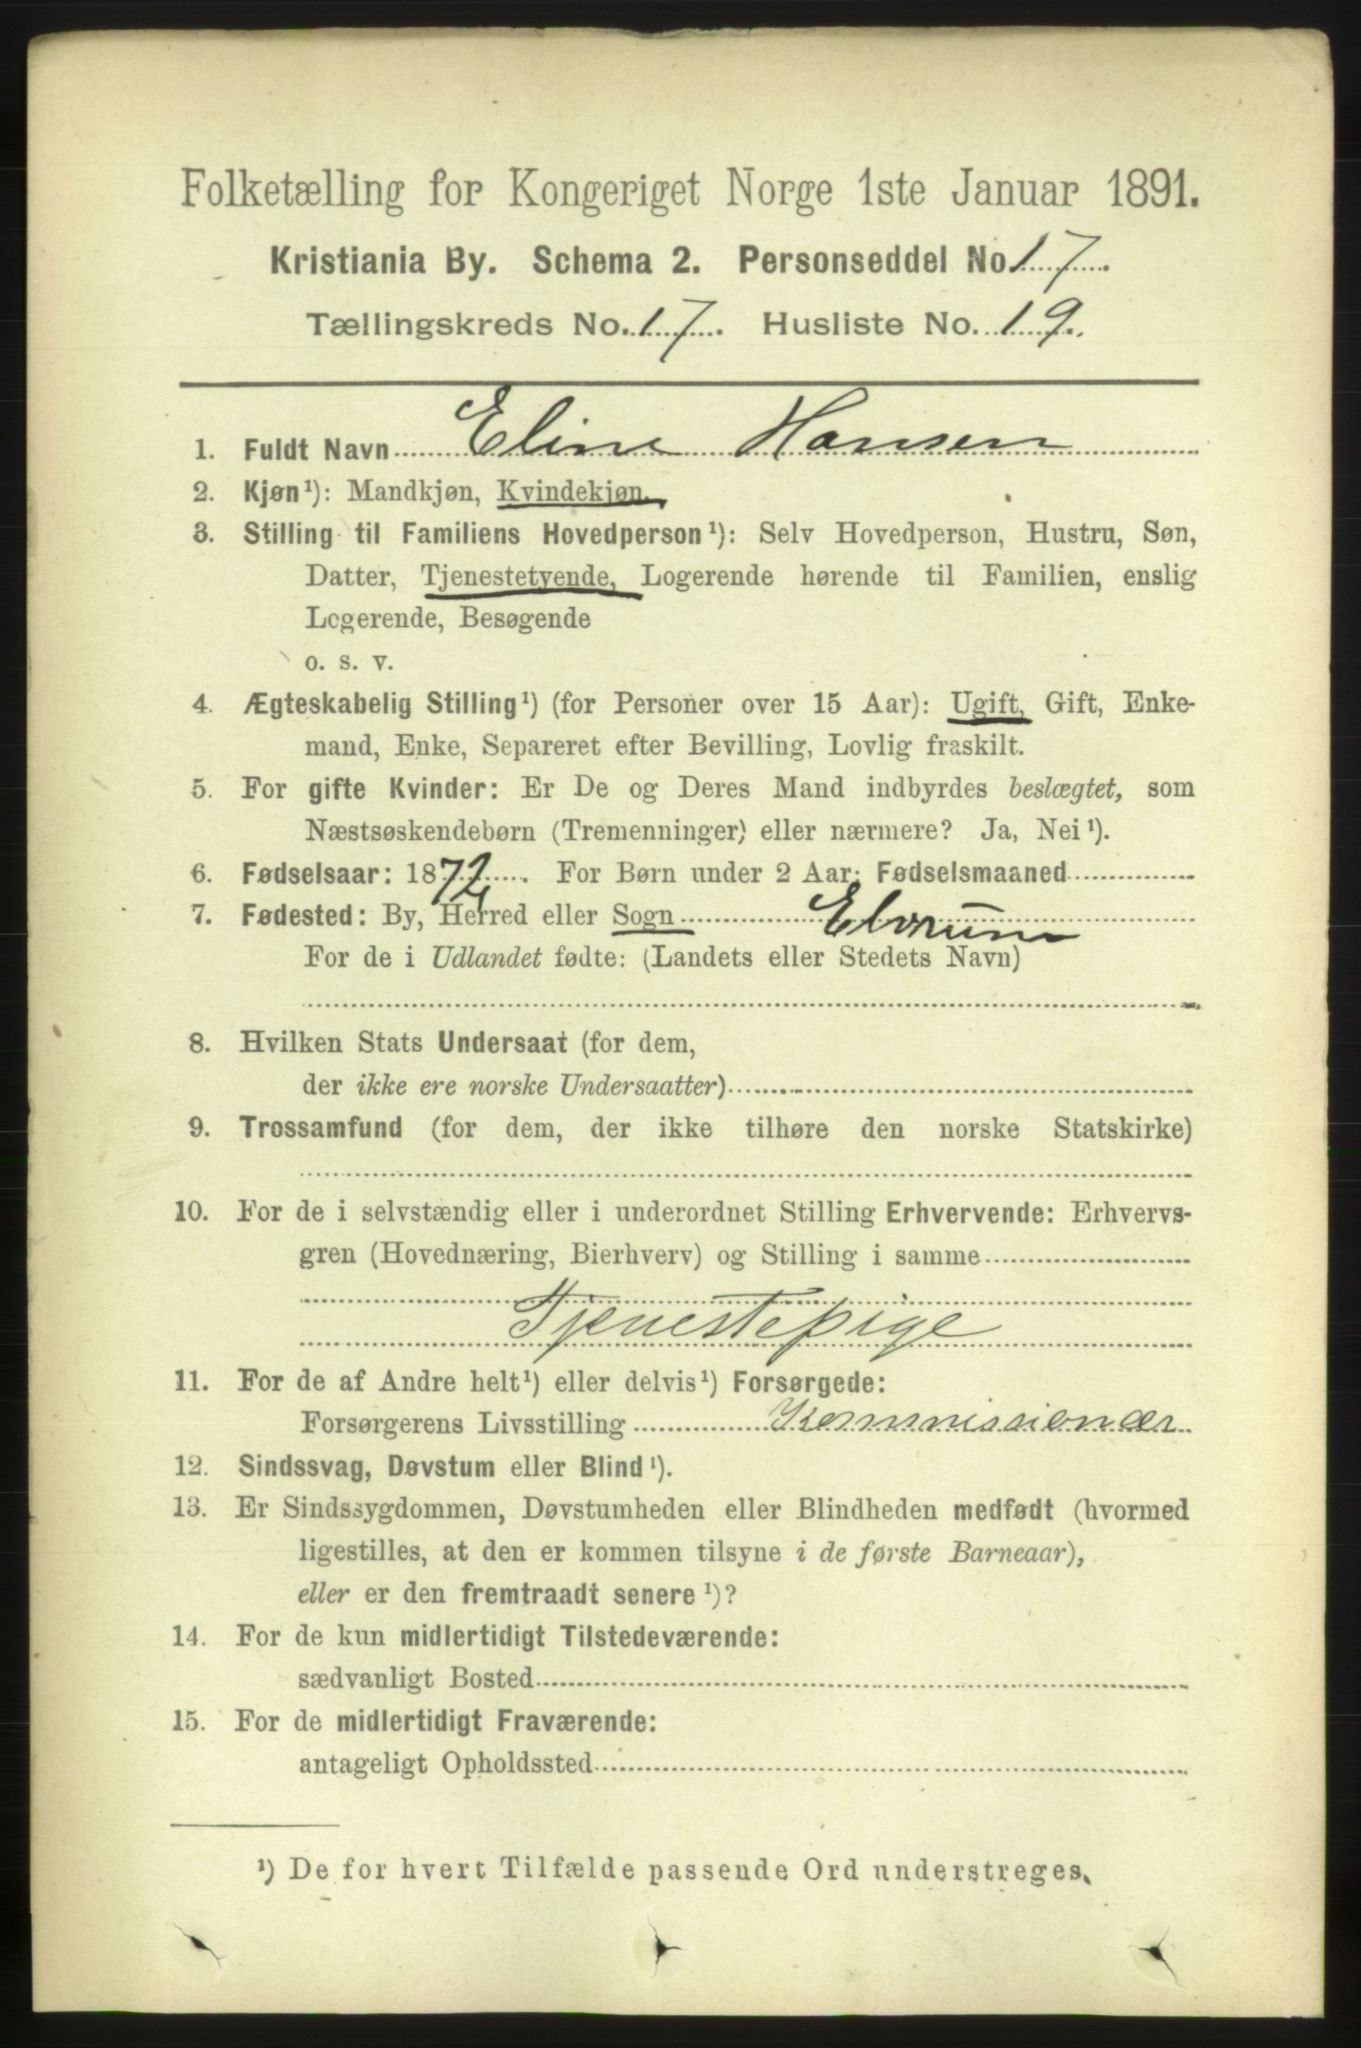 Folketælling for Kongeriget Norge 1ste Januar 1891.
Kristiania By. Schema 2. Personseddel No 17.
Tællingskreds No. 17. Husliste No. 19.
1. Fuldt Navn Eline Hansen
2. Kjøn¹): Mandkjøn, Kvindekjøn.
3. Stilling til Familiens Hovedperson¹): Selv Hovedperson, Hustru, Søn,
Datter, Tjenestetyende, Logerende hørende til Familien, enslig
Logerende, Besøgende
o. s. v.
4. Ægteskabelig Stilling¹) (for Personer over 15 Aar): Ugift, Gift, Enke-
mand, Enke, Separeret efter Bevilling, Lovlig fraskilt.
5. For gifte Kvinder: Er De og Deres Mand indbyrdes beslægtet, som
Næstsøskendebørn (Tremenninger) eller nærmere? Ja, Nei¹).
6. Fødselsaar: 1872. For Børn under 2 Aar: Fødselsmaaned
7. Fødested: By, Herred eller Sogn Elvrum
For de i Udlandet fødte: (Landets eller Stedets Navn)
8. Hvilken Stats Undersaat (for dem,
der ikke ere norske Undersaatter)
9. Trossamfund (for dem, der ikke tilhøre den norske Statskirke)
10. For de i selvstændig eller i underordnet Stilling Erhvervende: Erhvervs-
gren (Hovednæring, Bierhverv) og Stilling i samme
Tjenestepige
11. For de af Andre helt¹) eller delvis¹) Forsørgede:
Forsørgerens Livsstilling Kommissionær
12. Sindssvag, Døvstum eller Blind¹).
13. Er Sindssygdommen, Døvstumheden eller Blindheden medfødt (hvormed
ligestilles, at den er kommen tilsyne i de første Barneaar),
eller er den fremtraadt senere¹)?
14. For de kun midlertidigt Tilstedeværende:
sædvanligt Bosted
15. For de midlertidigt Fraværende:
antageligt Opholdssted
¹) De for hvert Tilfælde passende Ord understreges.